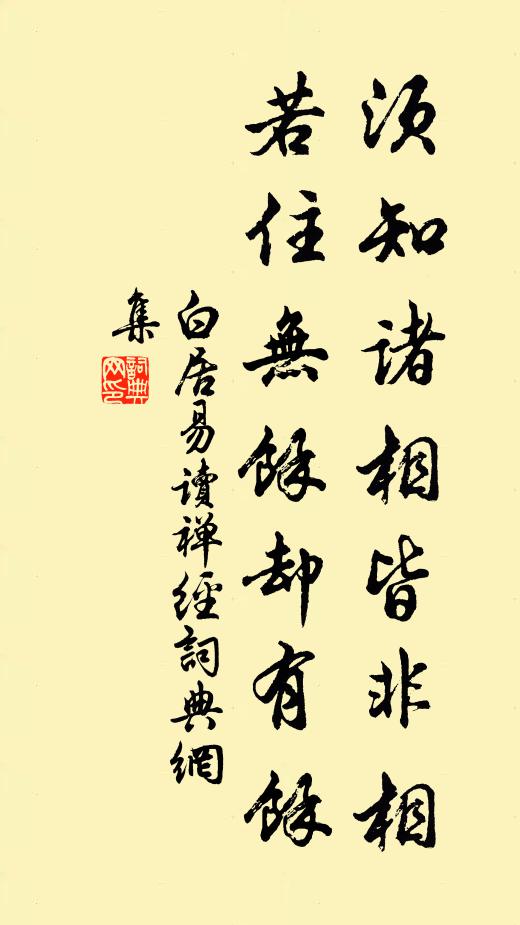 須知諸相皆非相
若住無餘却有餘
白居易讀禅經詞典網
集
詞典
网印